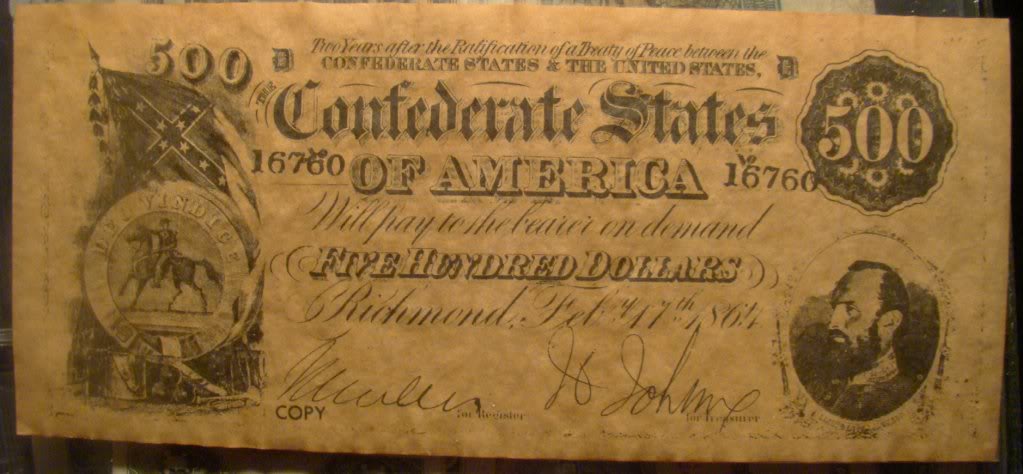 500
D
Two Years after the Ratification of a Treaty of Peace between the
CONFEDERATE STATES & THE UNITED STATES,
D
500
THE
Confederate States
No 16760
OF AMERICA
No 16760
Will pay to the bearer on demand
FIVE HUNDRED DOLLARS
Richmond, Feby 17th 1864
DEO VINDICE
COPY
for Register
for Treasurer